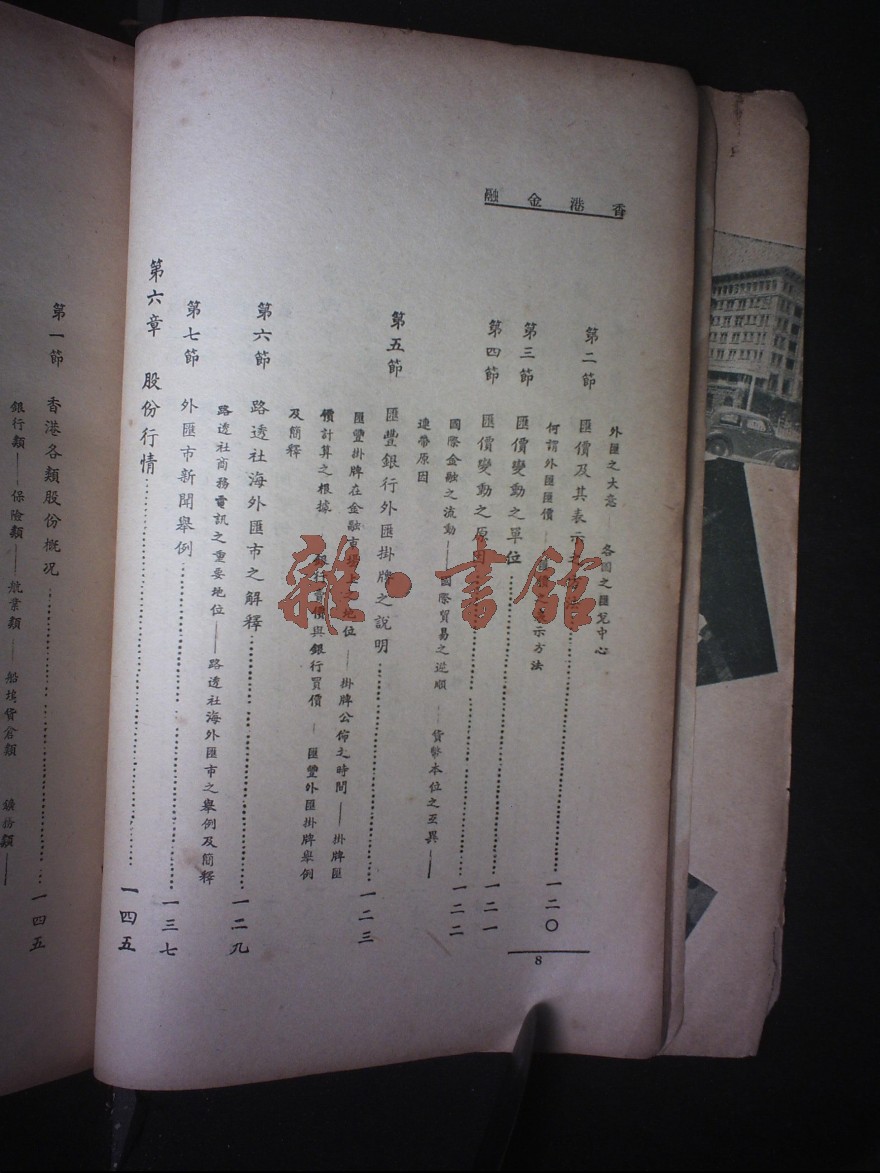 香港金融
外匯之大意——各國之匯兌中心
第二節 匯價及其表示方法……一二〇
何謂外匯匯價——匯價之表示方法
第三節 匯價變動之單位……一二一
第四節 匯價變動之原因……一二二
國際金融之流動——國際貿易之逆順——貨幣本位之互異——
連帶原因
第五節 匯豐銀行外匯掛牌之說明……一二三
匯豐掛牌在金融市場上之地位——掛牌公佈之時間——掛牌匯
價計算之根據——銀行賣價與銀行買價——匯豐外匯掛牌舉例
及簡釋
第六節 路透社海外匯市之解釋……一二九
路透社商務電訊之重要地位——路透社海外匯市之舉例及簡釋
第七節 外匯市新聞舉例……一三七
第六章 股份行情……一四五
8
第一節 香港各類股份概況……一四五
銀行類——保險類——航業類——船塢貨倉類 鑛務類——
雜·書館